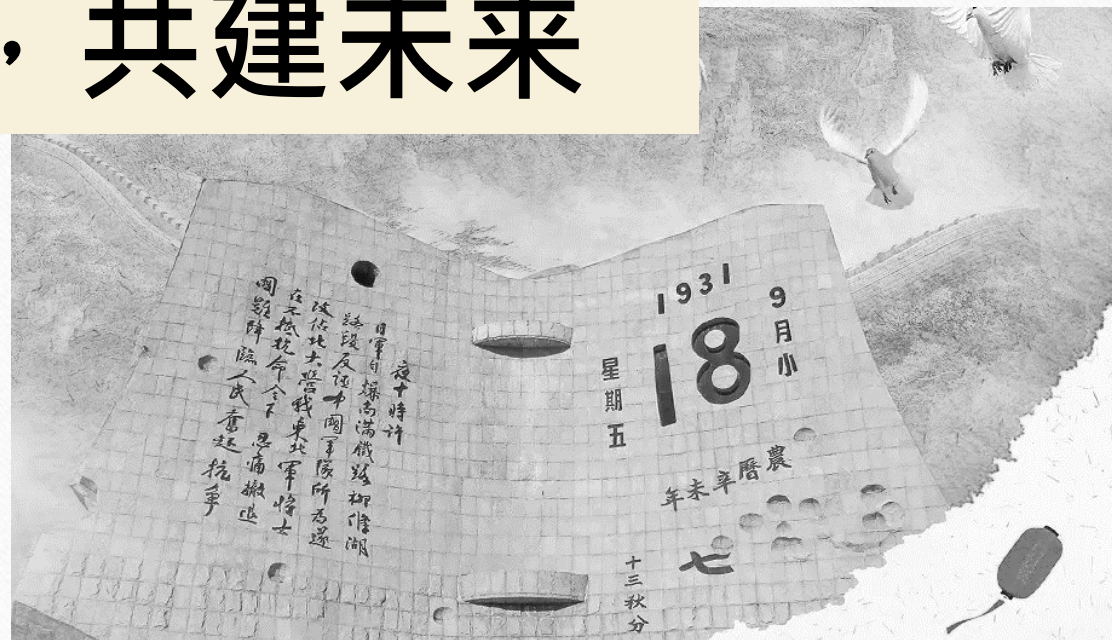 ，共建未来
夜十時許
日軍自爆南滿鐵路柳條湖
路段反誣中國軍隊所為遂
攻佔北大營我東北軍將士
在不抵抗命令下忍痛撤退
國難降臨人民奮起抗爭
1931
9月小
18
星期五
農曆辛未年
七
十三秋分